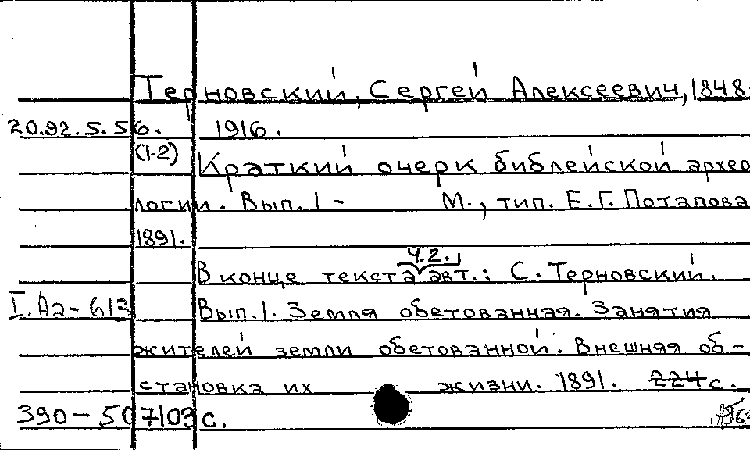 Терновский, Сергей Алексеевич, 1848-
20.92.5.56. 1916.
(1-2) Краткий очерк библейской архео
логии. Вып. 1 - М., тип. Е.Г. Потапова
1891.
ч.2.,
В конце текста авт.: С. Терновский.
I.Аа-613 Вып. 1. Земля обетованная. Занятия
жителей земли обетованной. Внешняя об-
становка их жизни. 1891. 224 с.
390-507/03 с.